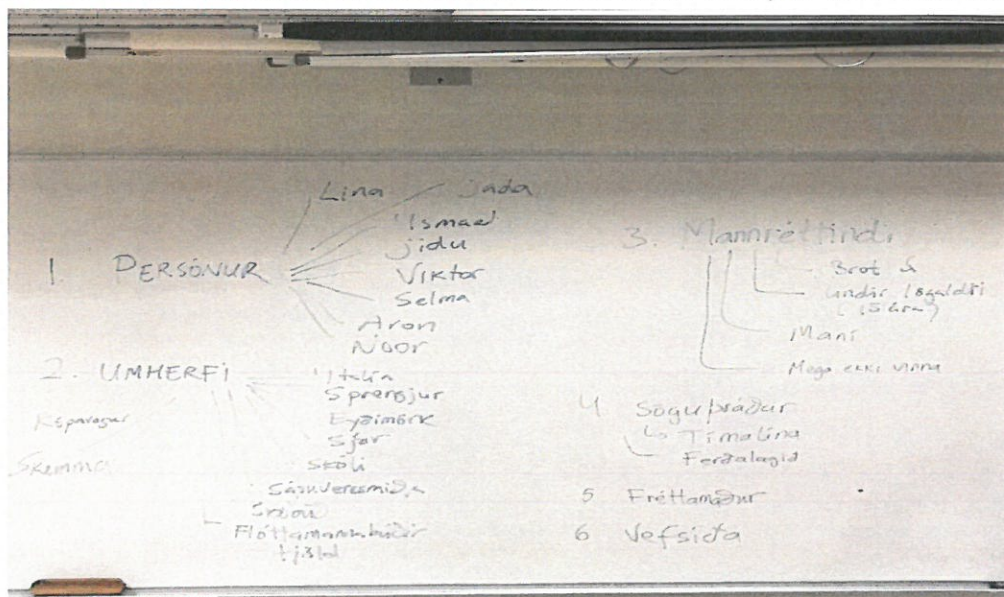 1. PERSÓNUR
Lina
Jada
Ismael
Jidu
Viktor
Selma
Aron
Noor
2. UMHERFI
Ítalía
Sprengjur
Eyðimörk
Sjór
Skóli
Skemma
Flóttamannabúðir
tjöld
3. Mannréttindi
Brot á
undir lögaldri
(15 ára)
Mans
Mega ekki vinna
4 Söguþráður
↳ Tímalína
Ferðalagið
5 Fréttamaður
6 Vefsíða